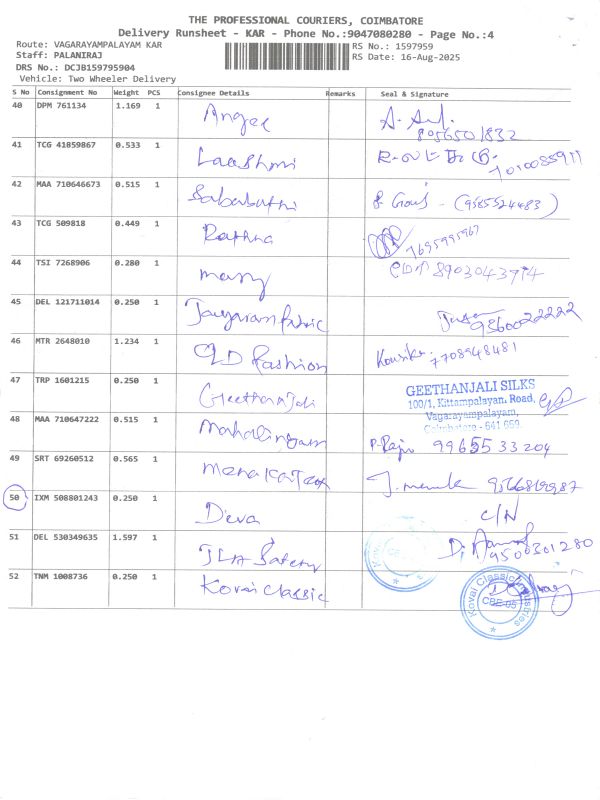 THE PROFESSIONAL COURIERS, COIMBATORE
Delivery Runsheet - KAR - Phone No.:9047080280 - Page No.:4
Route: VAGARAYAMPALAYAM KAR
RS No.: 1597959
Staff: PALANIRAJ
RS Date: 16-Aug-2025
DRS No.: DCJB159795904
Vehicle: Two Wheeler Delivery
S No Consignment No Weight PCS Consignee Details Remarks Seal & Signature
40 DPM 761134 1.169 1 8056501832
41 TCG 41859867 0.533 1 Laashmi
42 MAA 710646673 0.515 1 Sababathi (9585524483)
43 TCG 509818 0.449 1 Rathna 7695995967
44 TSI 7268906 0.280 1 many 8903043774
45 DEL 121711014 0.250 1 Jayaram fabric 9360022222
46 MTR 2648010 1.234 1 GLD Fashion 7708948481
47 TRP 1601215 0.250 1 Geethanjali GEETHANJALI SILKS
100/1, Kittampalayan. Road,
Vagarayampalayam,
Coimbatore - 641 659.
48 MAA 710647222 0.515 1 Mahalingam P. Raju 9965533204
49 SRT 69260512 0.565 1 Menaka Tex
50 IXM 508801243 0.250 1 Deva C/N
51 DEL 530349635 1.597 1 JLA Safety 9500301280
52 TNM 1008736 0.250 1 Kovai Classic
Kovai Classic Industries
CBE-05